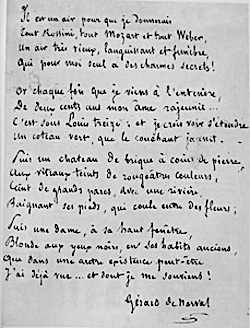 Il est un air pour que je donnerais
Tout Rossini, tout Mozart et tout Weber,
Un air très vieux, languissant et funèbre,
Qui pour moi seul a des charmes secrets!
Or chaque fois que je viens à l'entendre,
De deux cents ans mon âme rajeunit...
C'est sous Louis treize : et je crois voir s'étendre
Un coteau vert, que le couchant jaunit.
Puis un chateau de brique à coins de pierre,
Aux vitraux teints de rougeâtres couleurs,
Ceint de grands parcs, avec une rivière,
Baignant ses pieds, qui coule entre des fleurs;
Puis une dame, à sa haute fenêtre,
Blonde aux yeux noirs, en ses habits anciens,
Que dans une autre existence peut-être
J'ai déjà vue... et dont je me souviens!
Gérard de Nerval